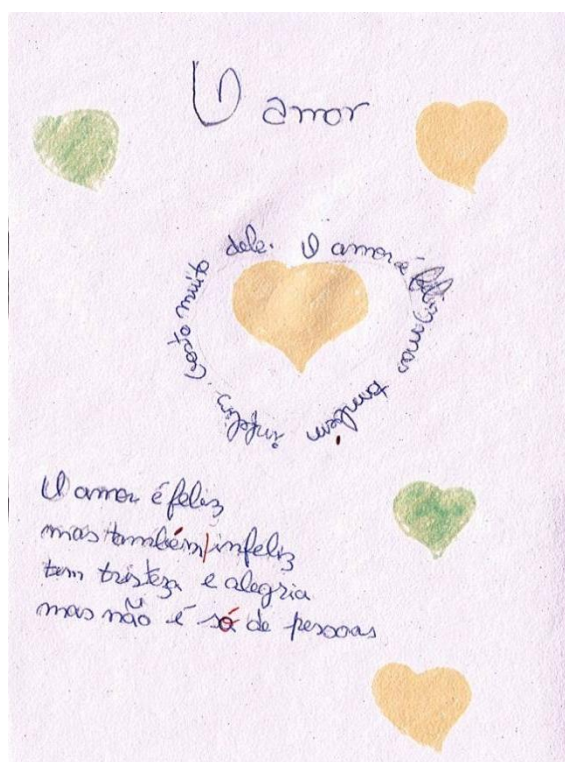 O amor
O amor é feliz mas também infeliz. Gosto muito dele.
O amor é feliz
mas também infeliz
tem tristeza e alegria
mas não é só de pessoas